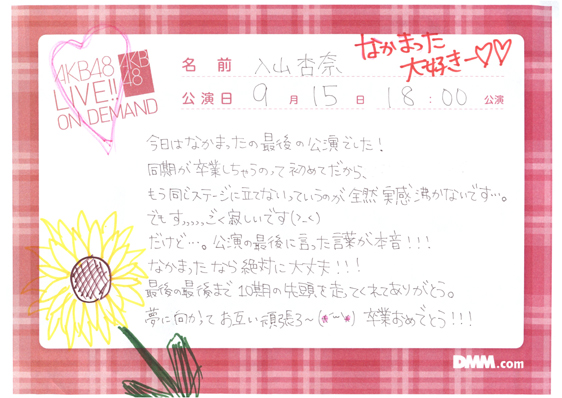 AKB48
LIVE!!
ON DEMAND
AKB
48
名 前 入山杏奈
なかまった
大好きー♡♡
公演日 9 月 15 日 18:00 公演
今日はなかまったの最後の公演でした!
同期が卒業しちゃうのって初めてだから、
もう同じステージに立てないっていうのが全然実感沸かないです…。
でもすっっっっごく寂しいです(>_<)
だけど…。公演の最後に言った言葉が本音!!!
なかまったなら絶対に大丈夫!!!
最後の最後まで10期の先頭を走ってくれてありがとう。
夢に向かってお互い頑張ろ〜(*´ー`*) 卒業おめでとう!!!
DMM.com